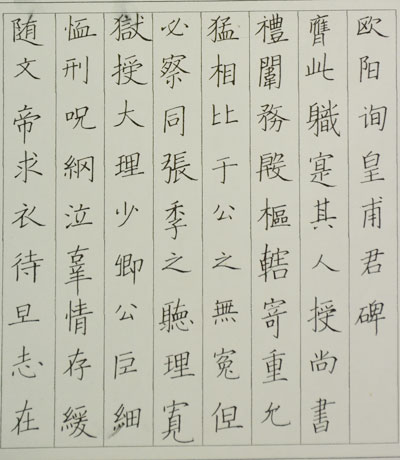 随文帝求衣待旦志在
恤刑呪網泣辜情存緩
獄授大理少卿公巨細
必察同張季之聽理寬
猛相比于公之無冤但
禮闈務殷樞轄寄重允
膺此職寔其人授尚書
欧阳询皇甫君碑